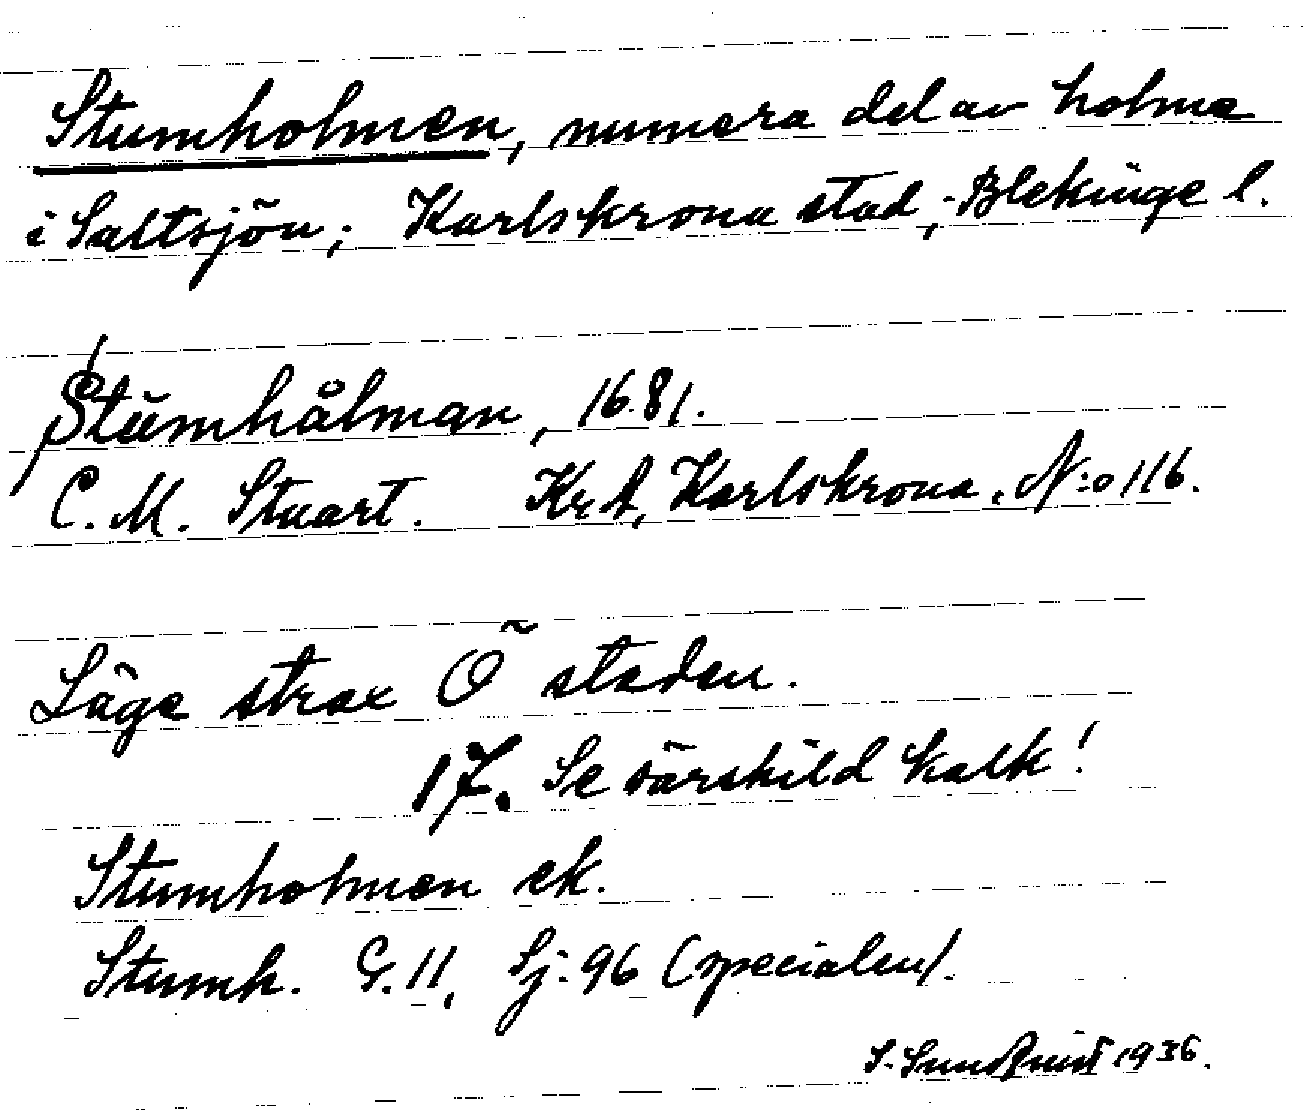 Stumholmen, numera del av holme
i Saltsjön; Karlskrona stad, Blekinge l.
Stumhålman, 1681.
C. M. Stuart. Krt, Karlskrona, N:o 116.
Läge strax Ö staden.
17. Se särskild kalk!
Stumholmen ek.
Stumh. G. 11, Sj. 96 (specialen).
S. Sundquist 1936.